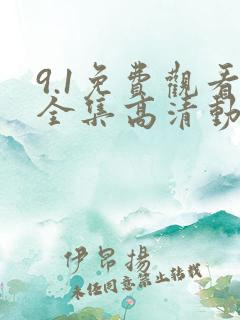 9.1免費觀看
全集高清動
伊昂揚
未经同意禁止转载